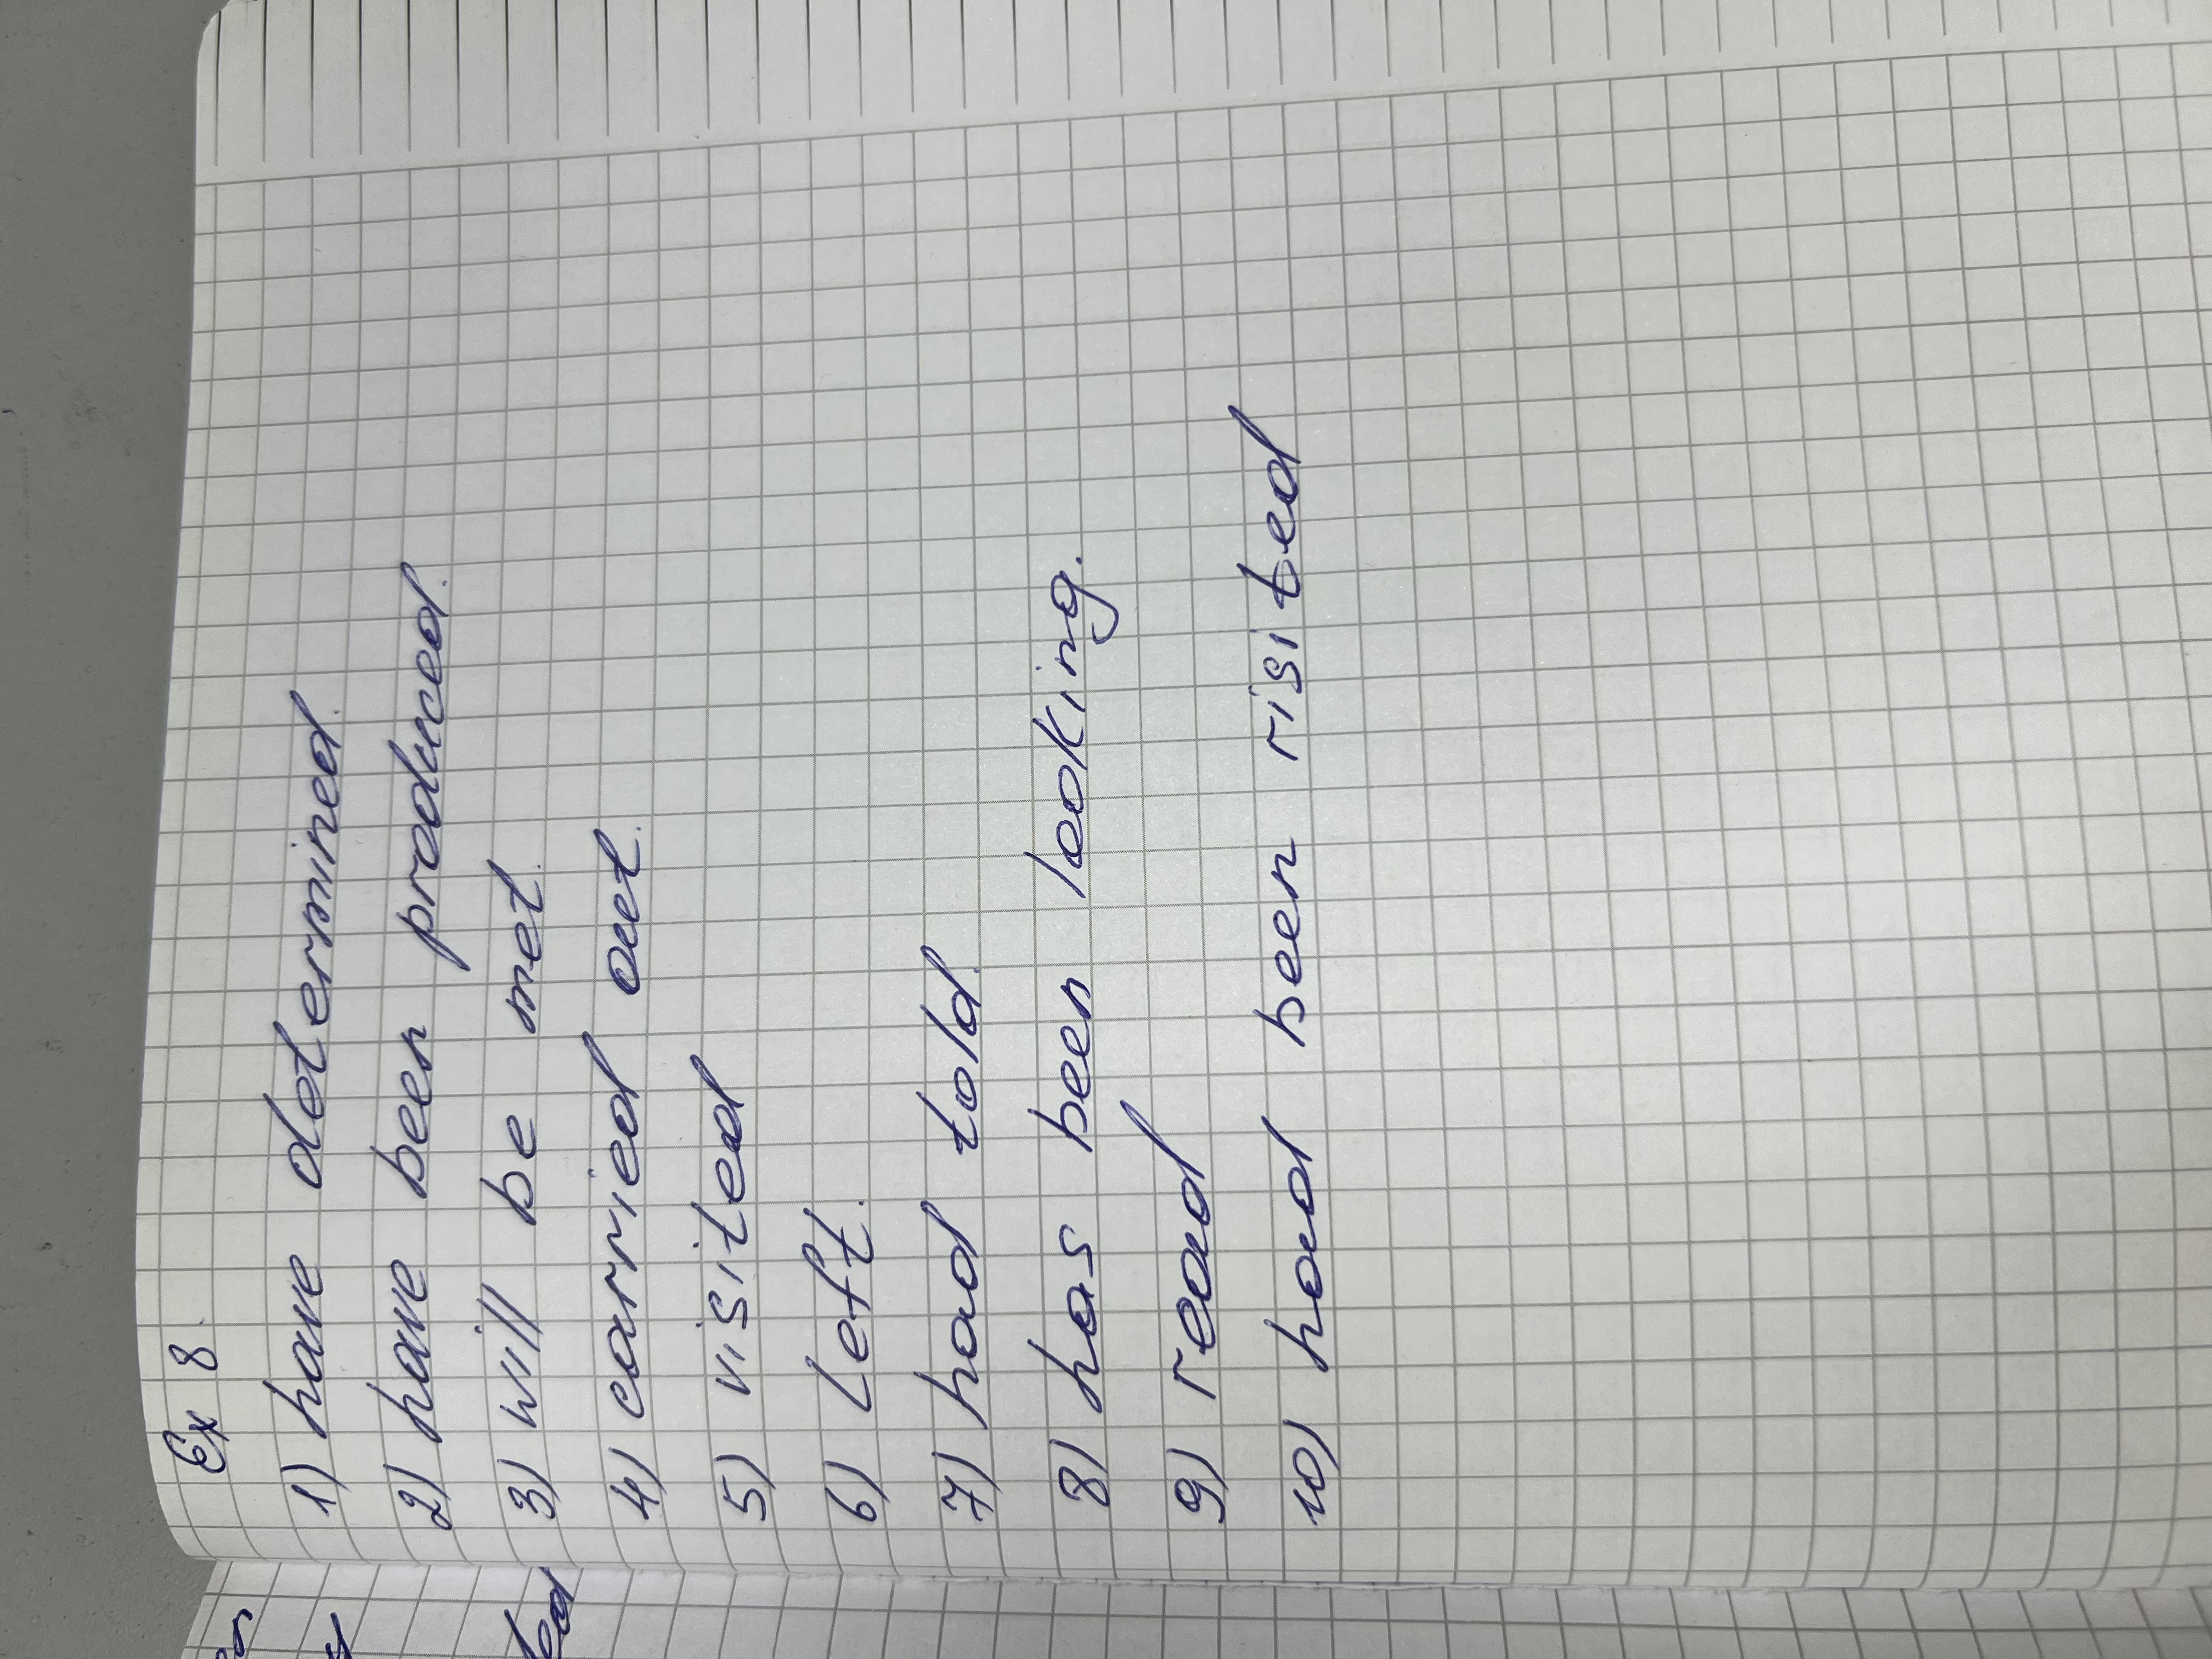 Ex 8.
1) have determined.
2) have been produced.
3) will be met.
4) carried out.
5) visited
6) Left.
7) had told.
8) has been looking.
9) read
10) had been risited